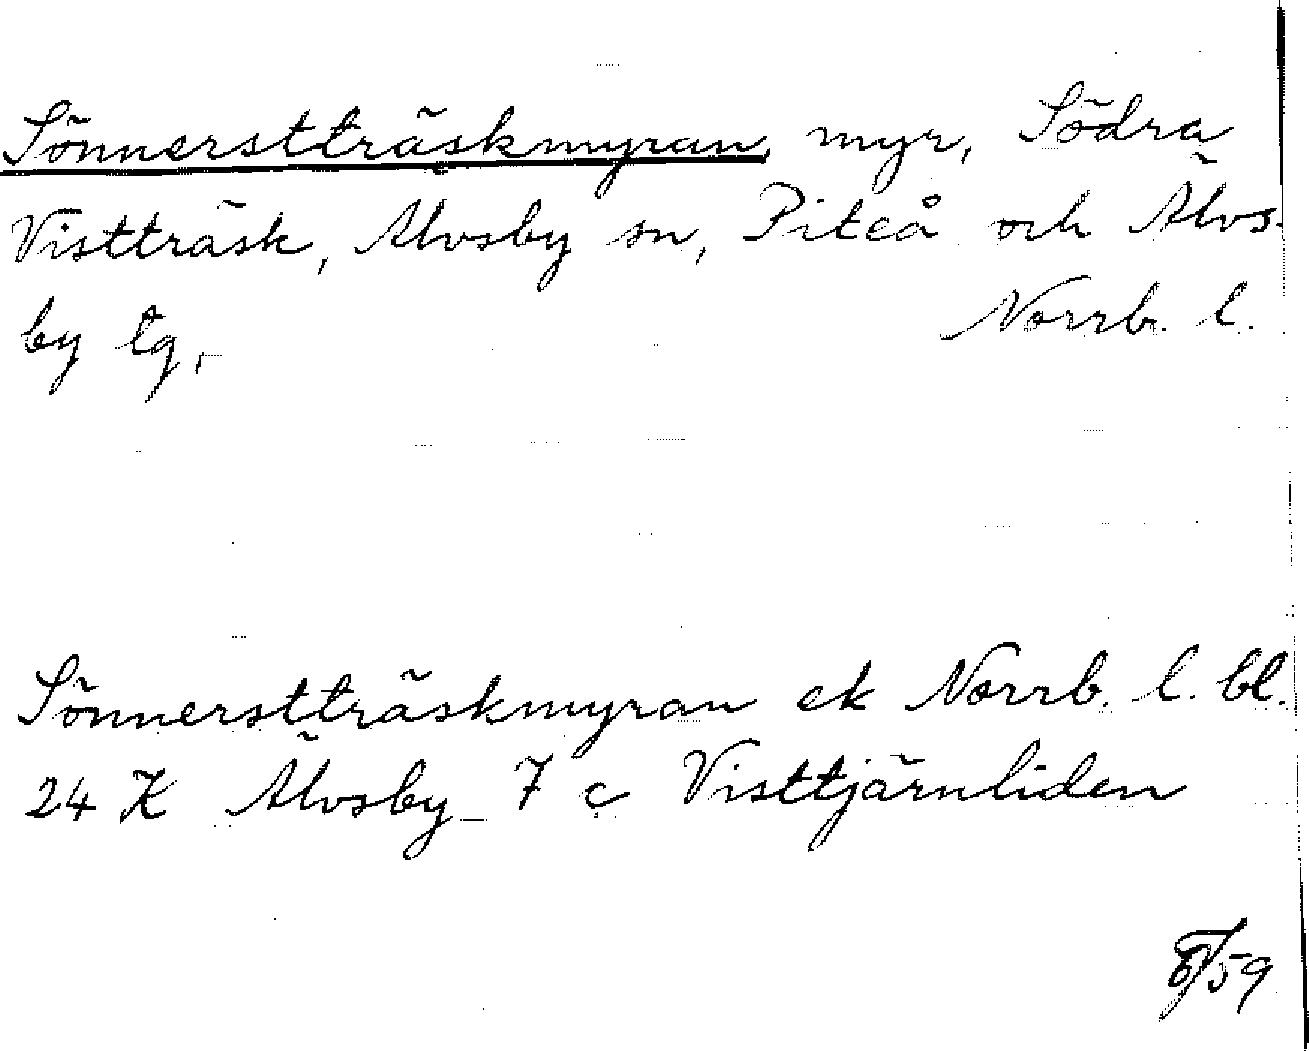 Sönnerstträskmyran, myr, Södra
Vistträsk, Älvsby sn, Piteå och Älvs-
by tg,
Norrb. l.
Sönnerstträskmyran ek Norrb. l. bl.
24 K Älvsby 7 c Visttjärnliden
/59